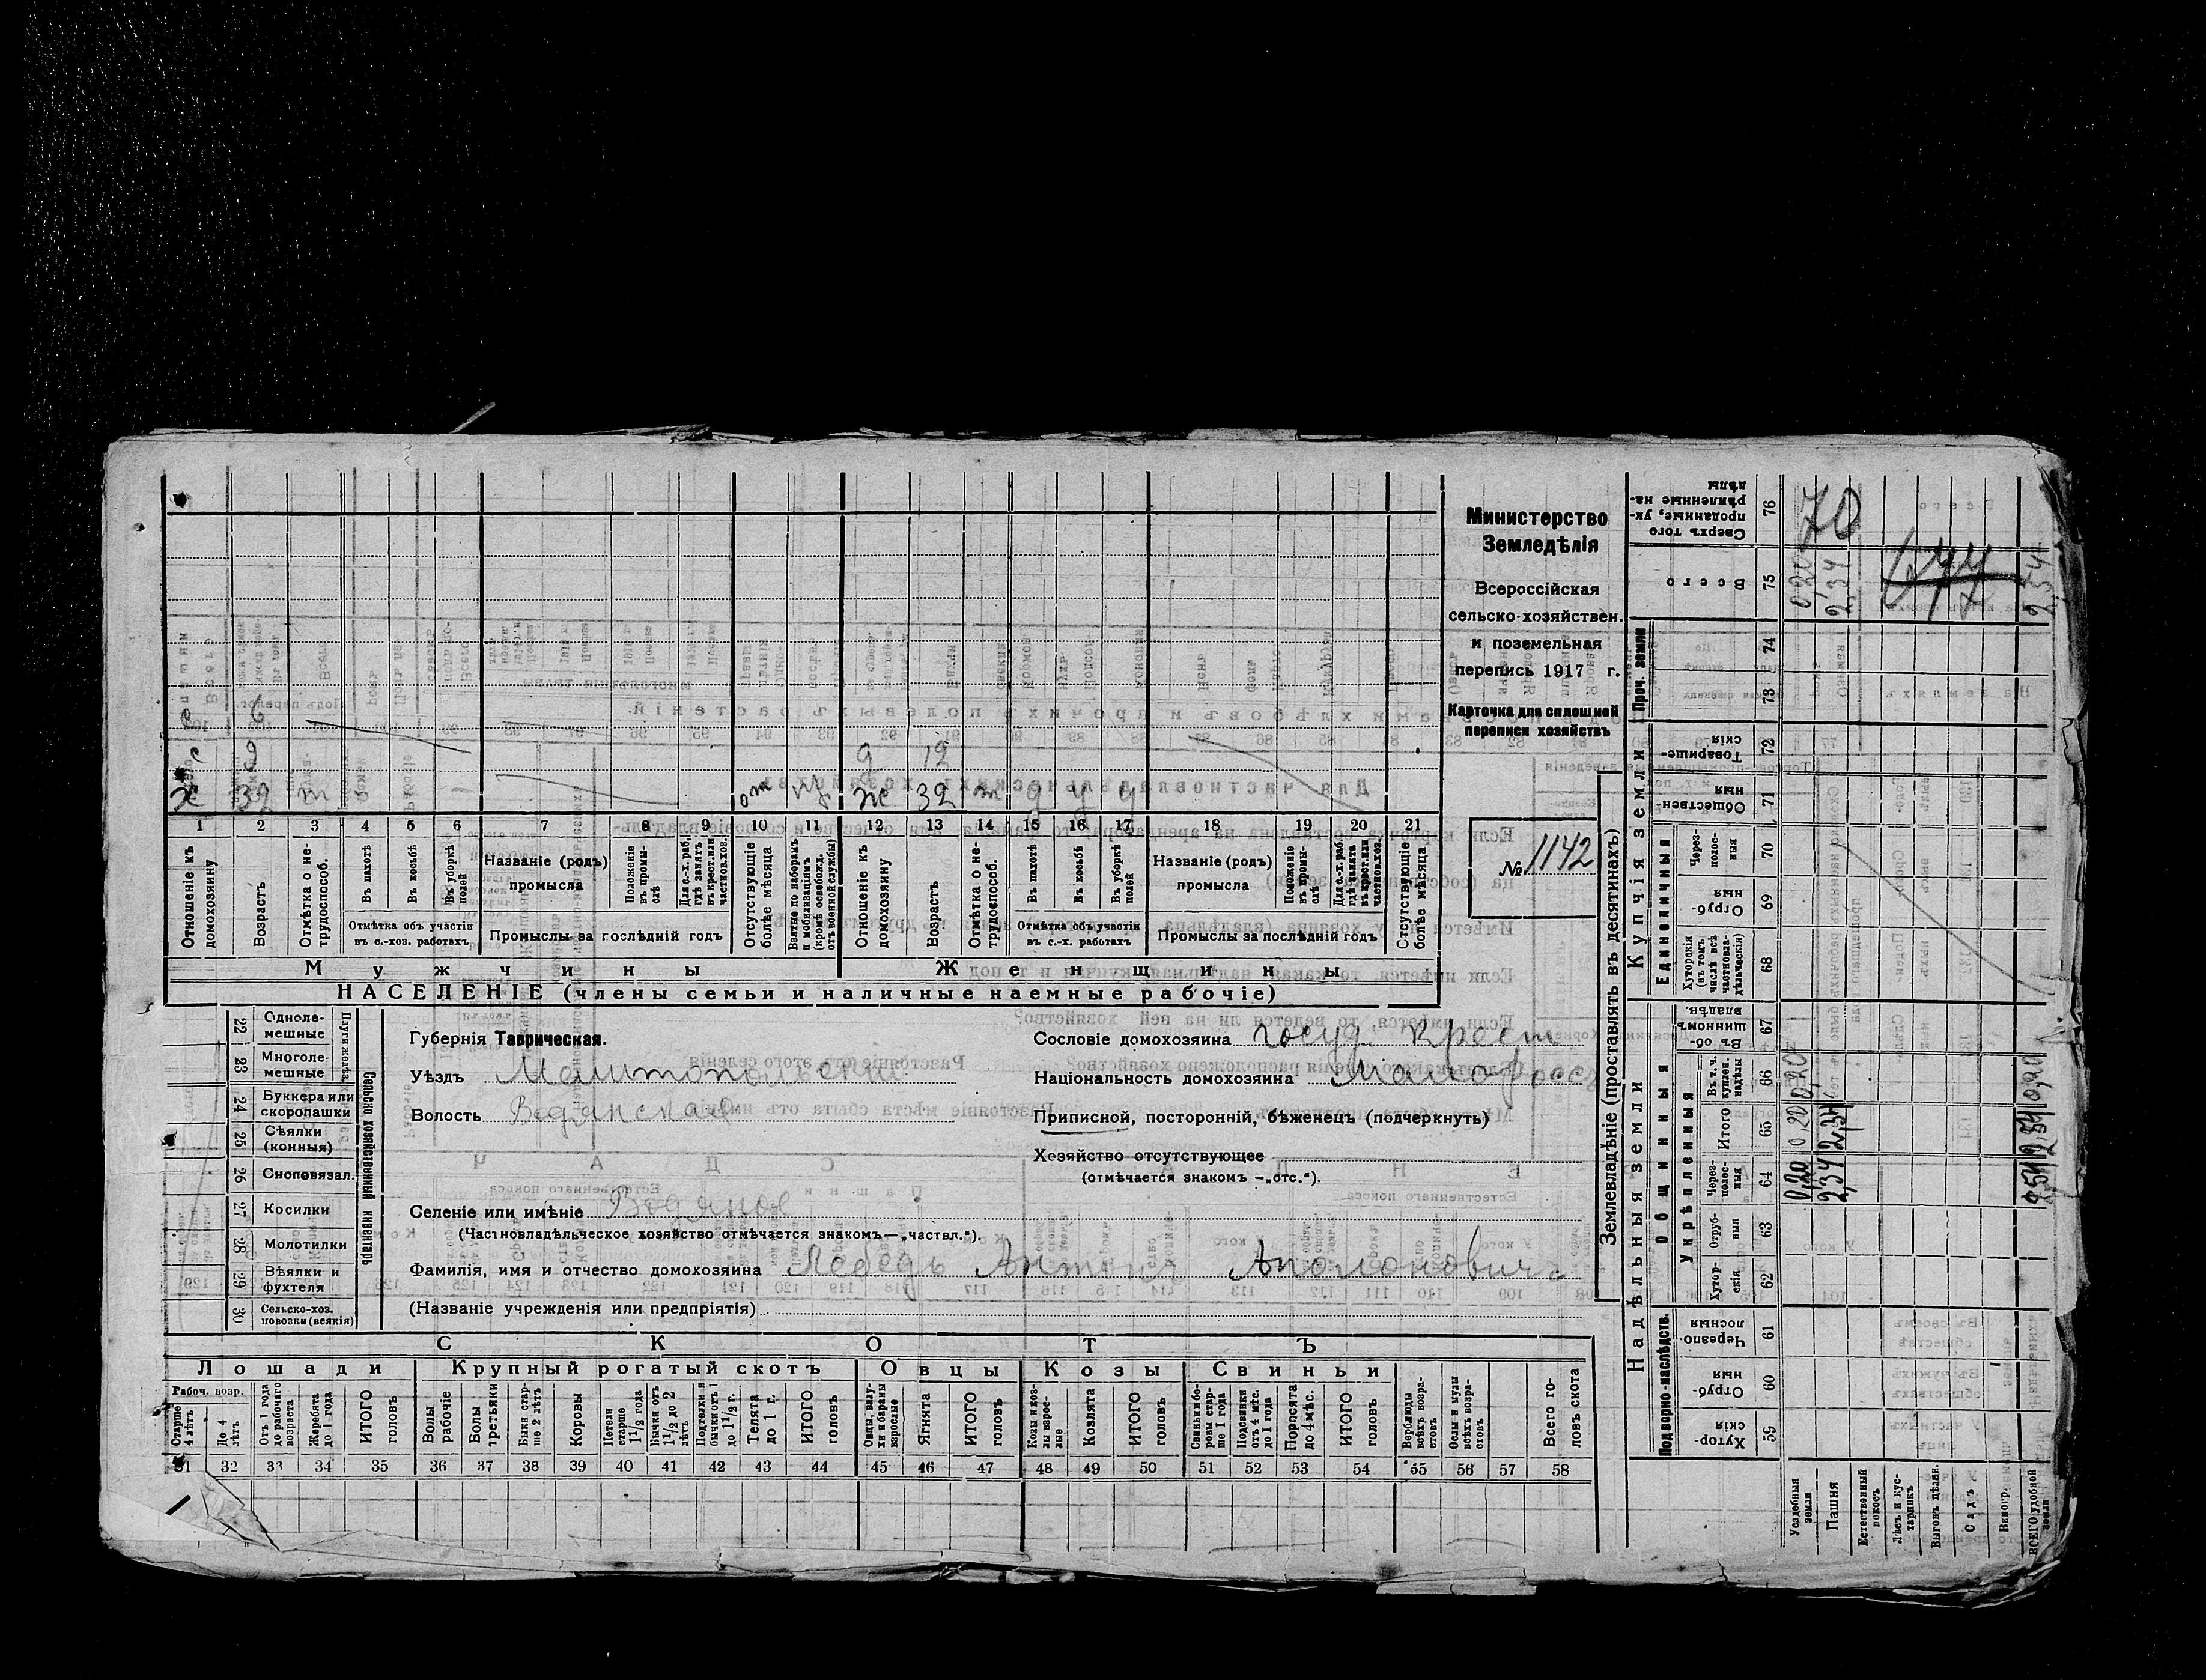 Министерство
Земледѣлія
Всероссійская
сельско-хозяйствен.
и поземельная
перепись 1917 г.
Карточка для сплошной
переписи хозяйствъ
№ 1142
с 6
с 9 д 12
х 32 т от ж 32 т
1 2 3 4 5 6 7 8 9 10 11 12 13 14 15 16 17 18 19 20 21
Отношеніе къ домохозяину
Возрастъ
Отмѣтка о нетрудоспособ.
Въ пахотѣ
Въ косьбѣ
Въ уборкѣ полей
Отмѣтка объ участіи въ с.-хоз. работахъ
Названіе (родъ) промысла
Положеніе въ промыслѣ
Для с.-х. раб. гдѣ занятъ въ крест. или частновл. хоз.
Промыслы за послѣдній годъ
Отсутствующіе болѣе мѣсяца
Взятые по наборамъ и мобилизаціямъ (кромѣ освобожд. отъ военной службы)
Отношеніе къ домохозяину
Возрастъ
Отмѣтка о нетрудоспособ.
Въ пахотѣ
Въ косьбѣ
Въ уборкѣ полей
Отмѣтка объ участіи въ с.-х. работахъ
Названіе (родъ) промысла
Положеніе въ промыслѣ
Для с.-х. раб. гдѣ занята въ крест. или частновл. хоз.
Промыслы за послѣдній годъ
Отсутствующіе болѣе мѣсяца
Мужчины Женщины
НАСЕЛЕНІЕ (члены семьи и наличные наемные рабочіе)
22 Одноле-мешные
23 Многоле-мешные
24 Буккера или скоропашки
25 Сѣялки (конныя)
26 Сноповязал.
27 Косилки
28 Молотилки
29 Вѣялки и фухтеля
30 Сельско-хоз. повозки (всякія)
Сельско хозяйственный инвентарь
Губернія Таврическая.
Уѣздъ Мелитопольскій
Волость Водянская
Сословіе домохозяина госуд. крест
Національность домохозяина Малоросс
Приписной, посторонній, бѣженец (подчеркнуть)
Хозяйство отсутствующее
(отмѣчается знакомъ —„отс.“).
Селеніе или имѣніе Водяное
(Частновладѣльческое хозяйство отмѣчается знакомъ—„частвл.“).
Фамилія, имя и отчество домохозяина Лебедь Антонъ Аполоновичъ
(Названіе учрежденія или предпріятія)
СКОТЪ
Лошади Крупный рогатый скотъ Овцы Козы Свиньи
Рабоч. возр.
Старше 4 лѣтъ
До 4 лѣтъ
Отъ 1 года до рабочаго возраста
Жеребята до 1 года
ИТОГО головъ
Волы рабочіе
Волы третьяки
Быки старше 2 лѣтъ
Коровы
Нетели старше 1½ года
Бычки отъ 1½ до 2 лѣтъ
Подтелки и бычки отъ 1 до 1½ г.
Телята до 1 г.
ИТОГО головъ
Овцы, валухи и бараны взрослые
Ягнята
ИТОГО головъ
Козы и козлы взрослые
Козлята
ИТОГО головъ
Свиньи и боровы старше 1 года
Подсвинки отъ 4 мѣс. до 1 года
Поросята до 4 мѣс.
ИТОГО головъ
Верблюды всѣхъ возрастовъ
Ослы и мулы всѣхъ возрастовъ
Всего головъ скота
31 32 33 34 35 36 37 38 39 40 41 42 43 44 45 46 47 48 49 50 51 52 53 54 55 56 57 58
Землевладѣніе (проставлять въ десятинахъ)
Надѣльныя земли
Купчія земли
Проч. земли
Подворно-наслѣдств.
Общинныя
Укрѣпленныя
Единоличныя
Сверхъ того проданные, укрѣпленные надѣлы 76 70
Всего 75 0,20 2,34 2,54
74
73
Товарищескія 72
Общественныя 71
Черезполосныя 70
Отрубныя 69
Хуторскія (въ томъ числѣ всѣ частновладѣльческія) 68
Въ общинномъ владѣн. 67
Въ т. ч. куплен. надѣлы 66 0,20 0,20
Итого 65 0,20 2,34 2,54
Черезполосныя 64 0,20 2,34 2,54
Отрубныя 63
Хуторскія 62
Черезполосныя 61
Отрубныя 60
Хуторскія 59
Усадебныя земли
Пашня
Естественный покосъ
Лѣсъ и кустарникъ
Выгонъ цѣлин.
Садъ
Виногр.
ВСЕГО удобной земли